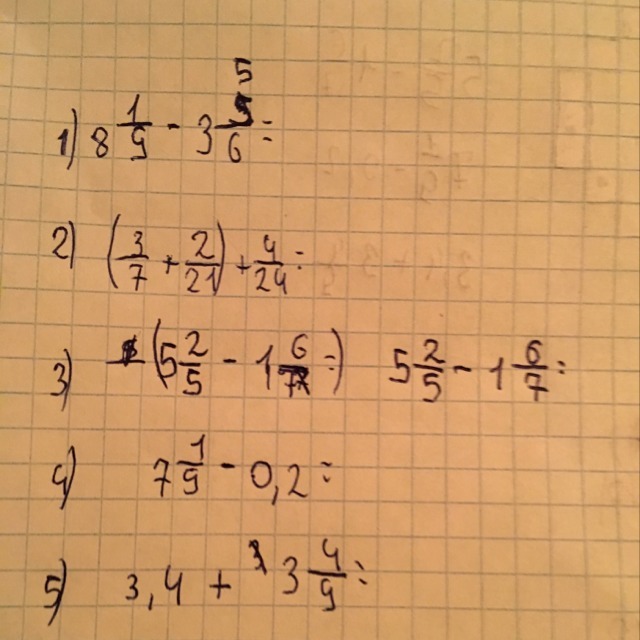 1) 8 1/9 - 3 5/6 =
2) (3/7 + 2/21) + 4/24 =
3) (5 2/5 - 1 6/7 =) 5 2/5 - 1 6/7 =
4) 7 1/9 - 0,2 =
5) 3,4 + 3 4/9 =